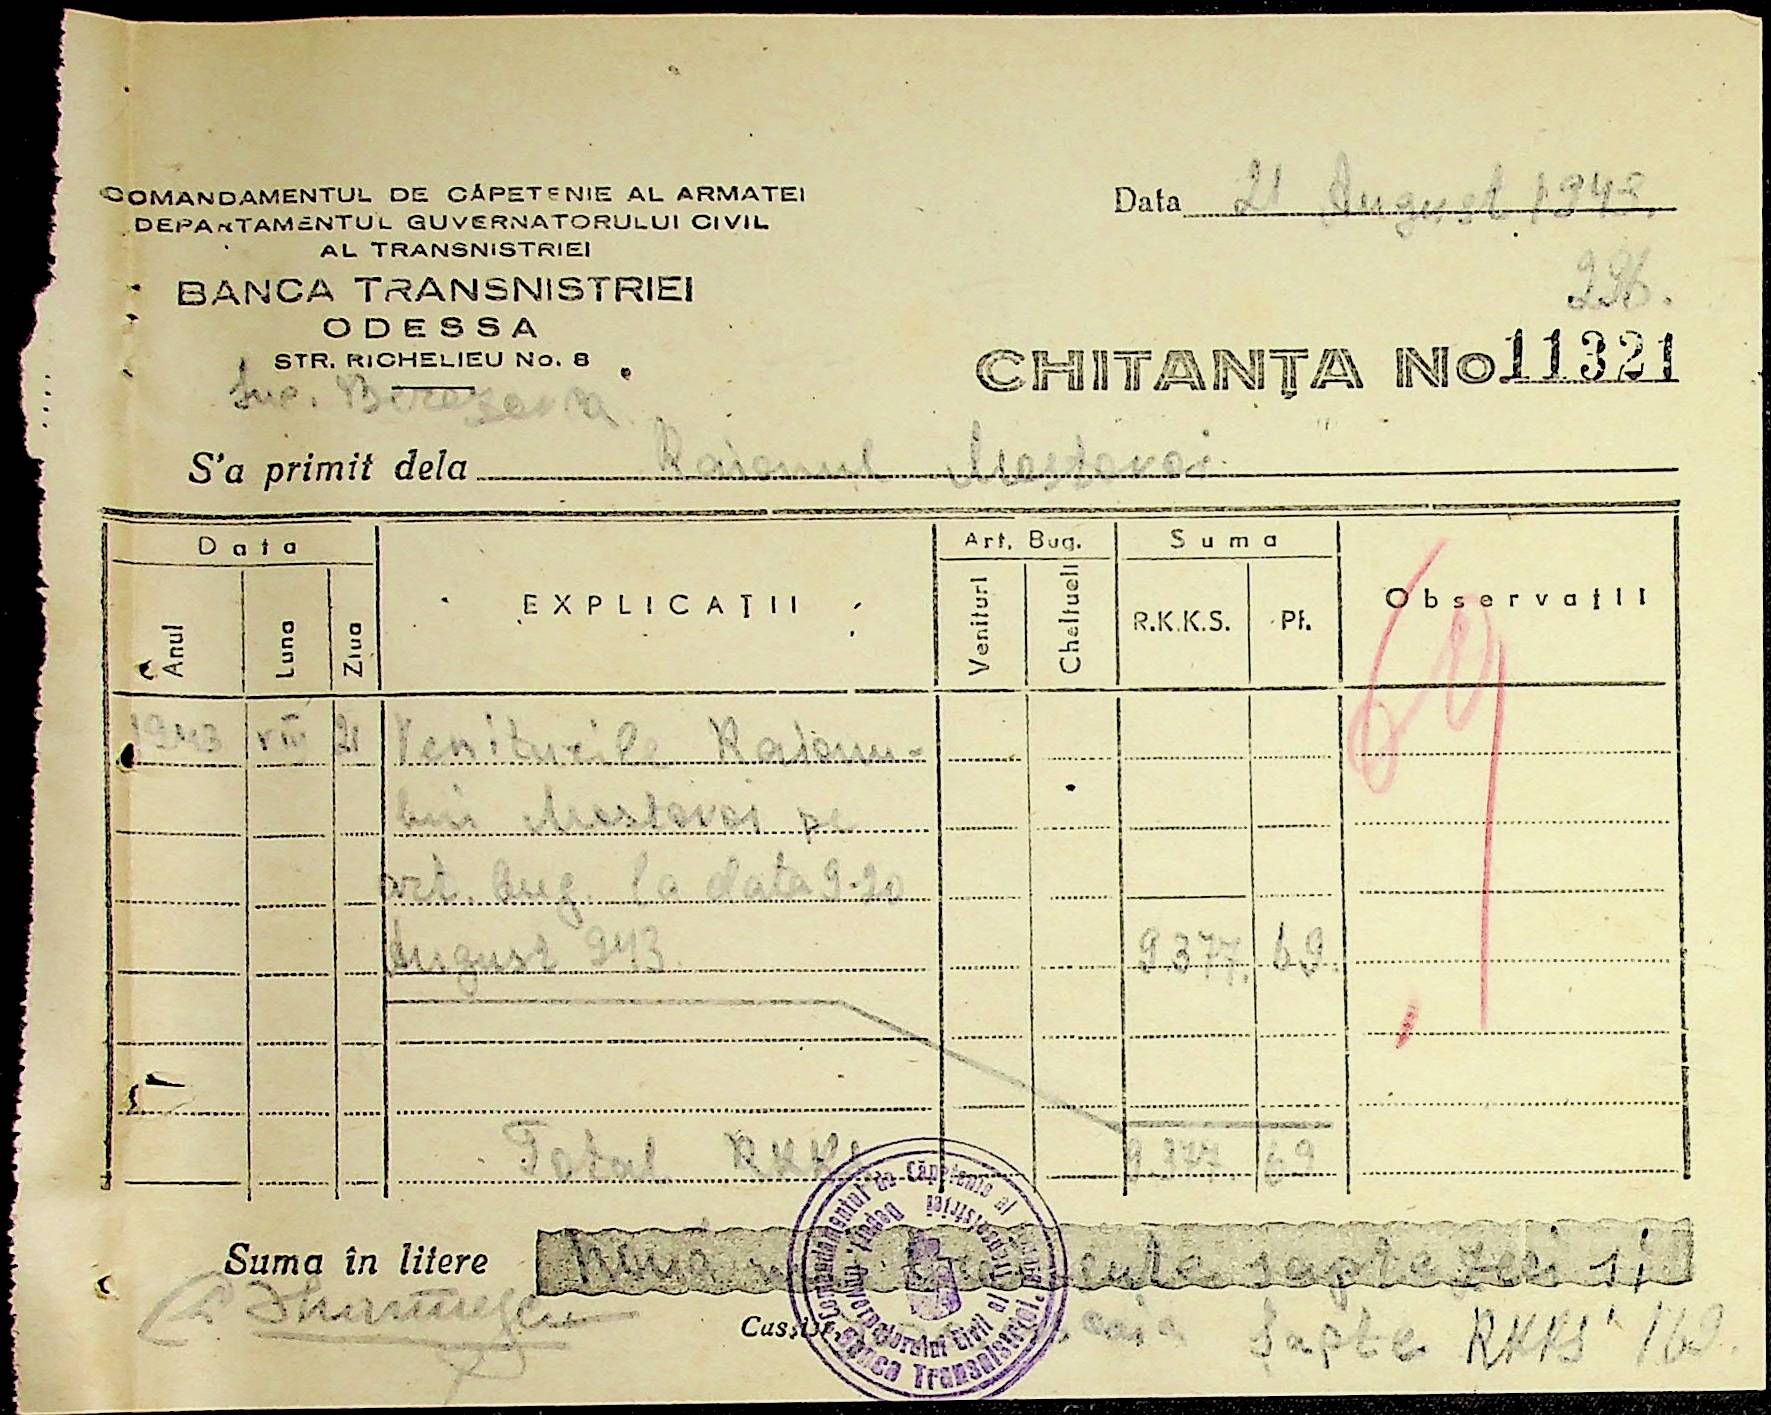 COMANDAMENTUL DE CĂPETENIE AL ARMATEI
DEPARTAMENTUL GUVERNATORULUI CIVIL
AL TRANSNISTRIEI
BANCA TRANSNISTRIEI
ODESSA
STR. RICHELIEU No. 8
Suc. Berezovca
Data 21 August 1943.
296.
CHITANȚA No 11321
S'a primit dela Raionul Mostovoi
Data
Anul Luna Ziua
EXPLICAȚII
Art. Bug.
Venituri Cheltueli
Suma
R.K.K.S. Pf.
Observații
69
1943 VIII 21 Veniturile Raionu-
lui Mostovoi pe
art. bug. la data 9-20
August 943. 9377. 69.
Total RKKS 9.377 69
Suma în litere șaptezeci și
Casier, șapte RKKS 69.
Comandamentul de Căpetenie al Armatei. Banca Transnistriei.
Depart. Guvernatorului Civil al Transnistriei